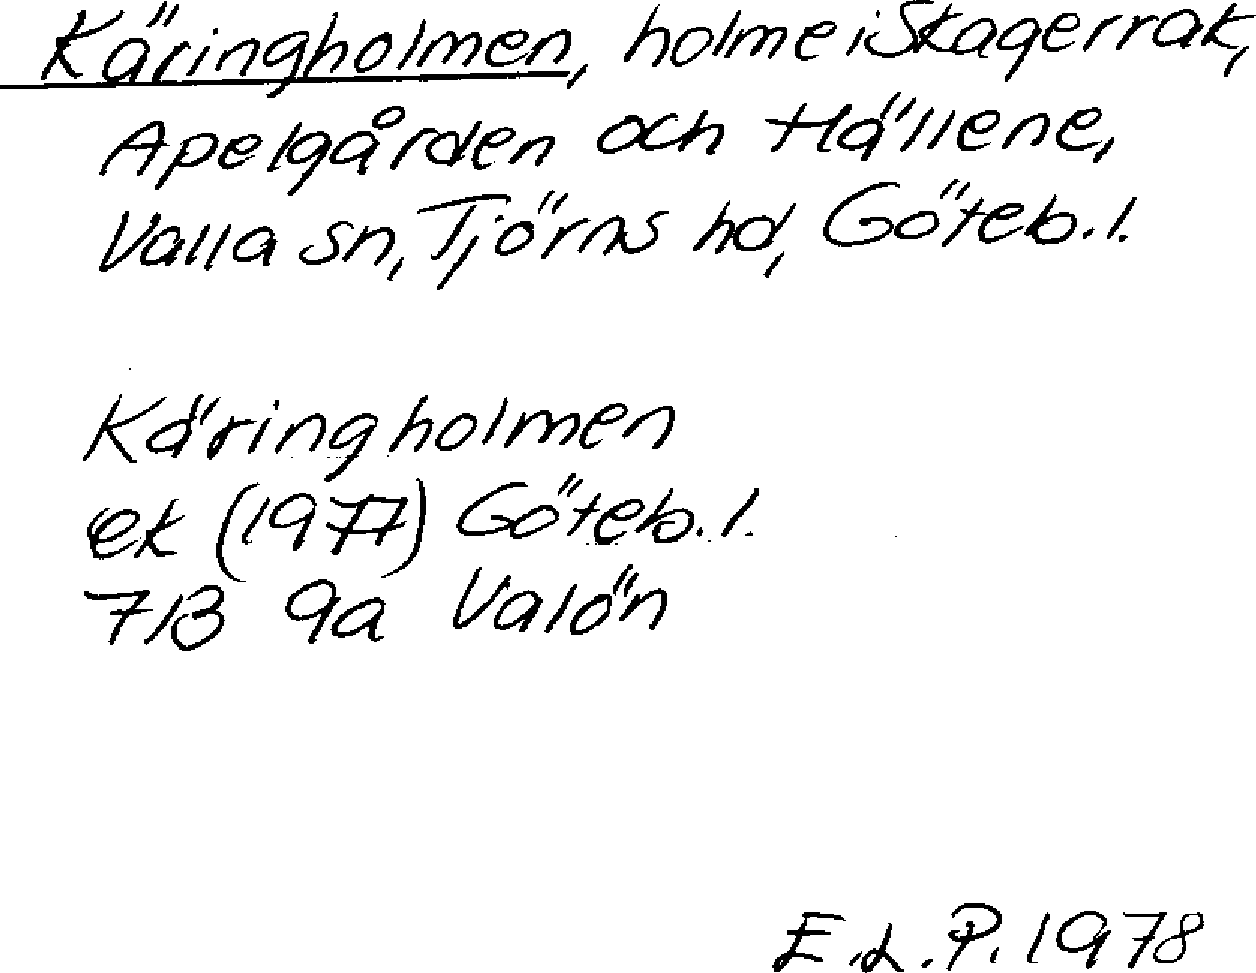 Käringholmen, holme i Skagerrak,
Apelgården och Hällene,
Valla sn, Tjörns hd, Göteb. l.
Käringholmen
ek (1977) Göteb. l.
7B 9a Valön
E.L.P. 1978